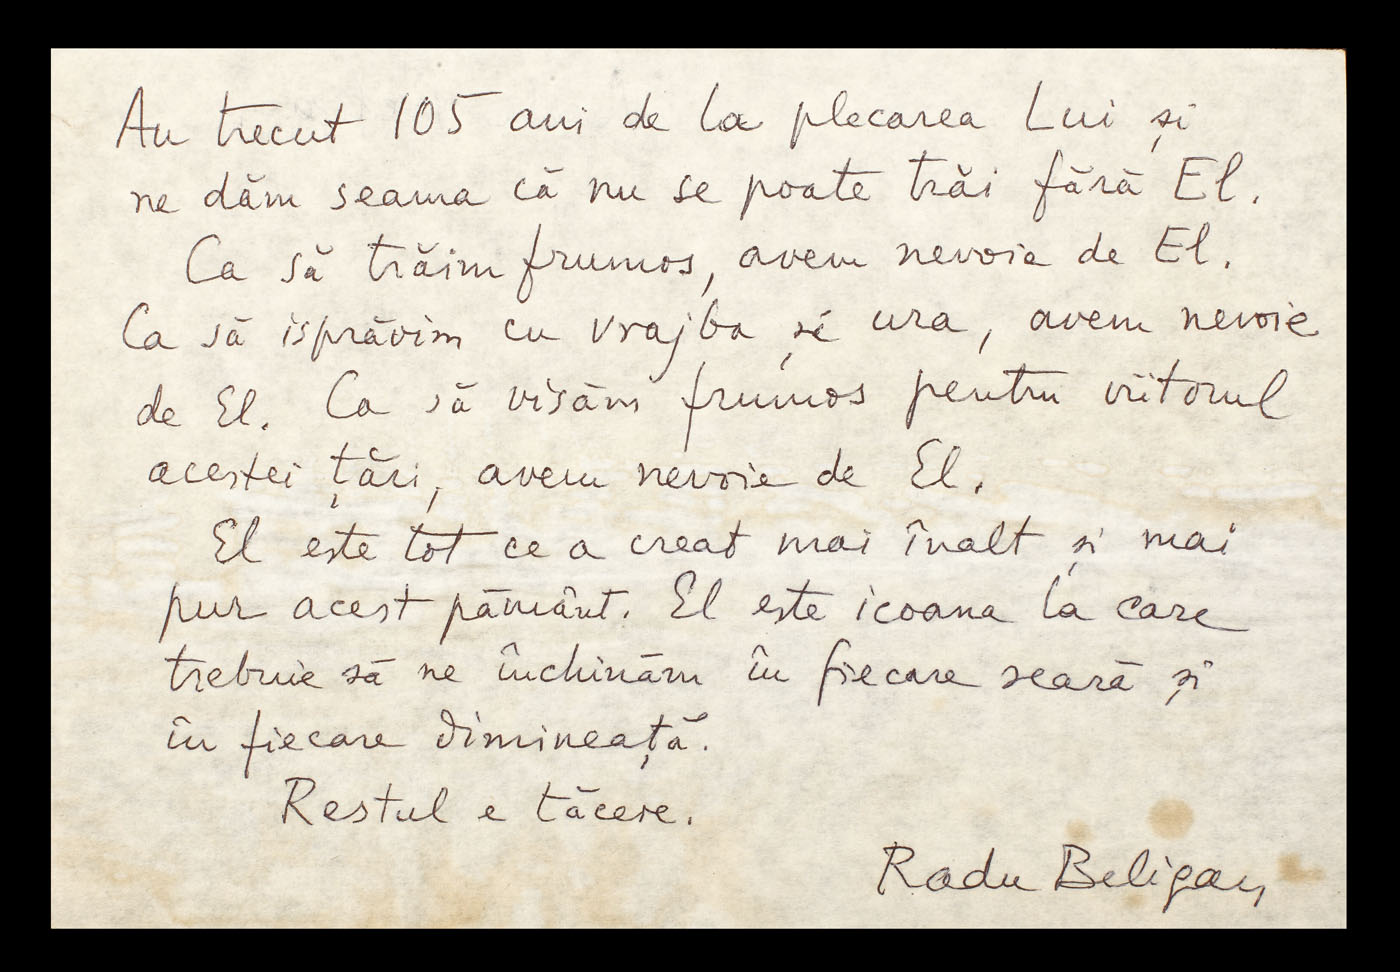 Au trecut 105 ani de la plecarea Lui și
ne dăm seama că nu se poate trăi fără El.
Ca să trăim frumos, avem nevoie de El.
Ca să isprăvim cu vrajba și ura, avem nevoie
de El. Ca să visăm frumos pentru viitorul
acestei țări, avem nevoie de El.
El este tot ce a creat mai înalt și mai
pur acest pământ. El este icoana la care
trebuie să ne închinăm în fiecare seară și
în fiecare dimineață.
Restul e tăcere.
Radu Beligan